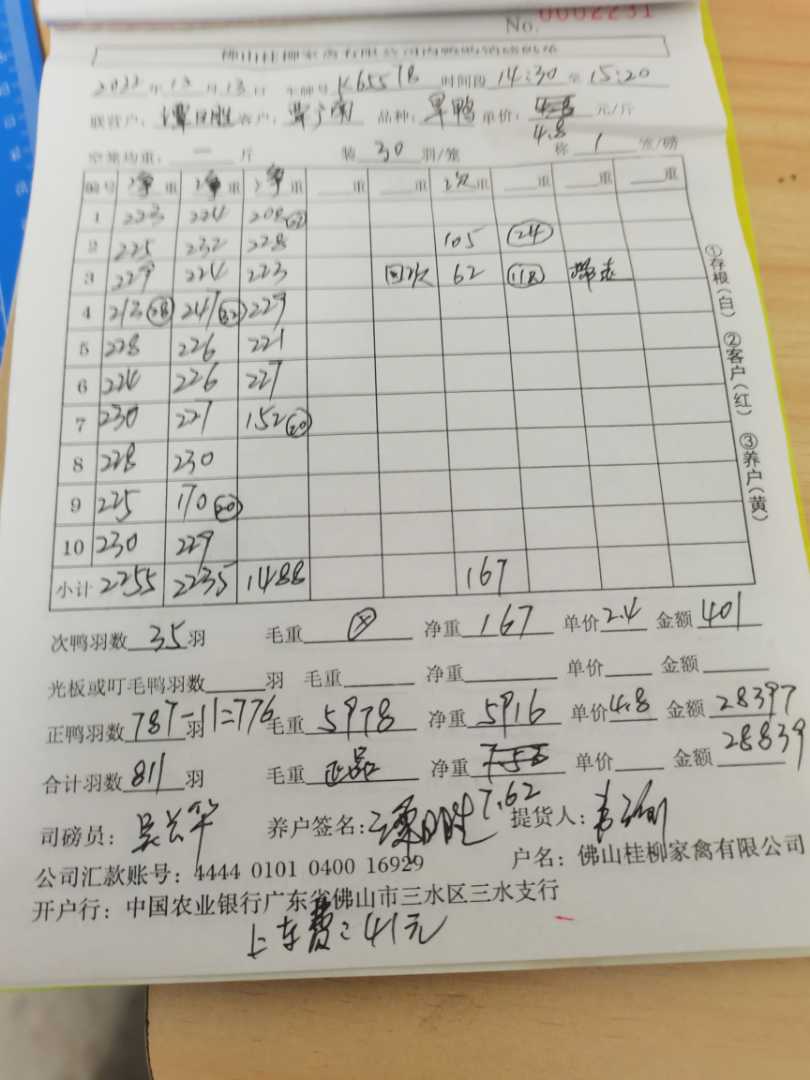 No. 0002231
佛山桂柳家禽有限公司肉鸭购销磅码单
2022年12月13日 车牌号 K6551B 时间段 14:30 至 15:20
联营户: 谭日胜 客户: 品种: 旱鸭 单价: 4.8 元/斤
4.8
空笼均重: 一 斤 装 30 羽/笼 称 1 笼/磅
编号 净重 净重 净重 重 重 次重 重 重 重
1 223 224 208
2 225 232 228 105 (24)
3 229 224 223 回次 62 (11只) 带走
4 213 (28) 247 (32) 229
5 228 226 221
6 224 226 227
7 230 227 152 (20)
8 228 230
9 225 170 (20)
10 230 229
小计 2255 2235 1488 167
①存根(白) ②客户(红) ③养户(黄)
次鸭羽数 35 羽 毛重 净重 167 单价 2.4 金额 401
光板或叮毛鸭羽数 羽 毛重 净重 单价 金额
正鸭羽数 787-11=776 羽 毛重 5978 净重 5916 单价 4.8 金额 28397
合计羽数 811 羽 毛重 正品 净重 单价 金额 28839
7.62
司磅员: 吴兰华 养户签名: 谭日胜 提货人:
公司汇款账号: 4444 0101 0400 16929 户名: 佛山桂柳家禽有限公司
开户行: 中国农业银行广东省佛山市三水区三水支行
上车费: 41元